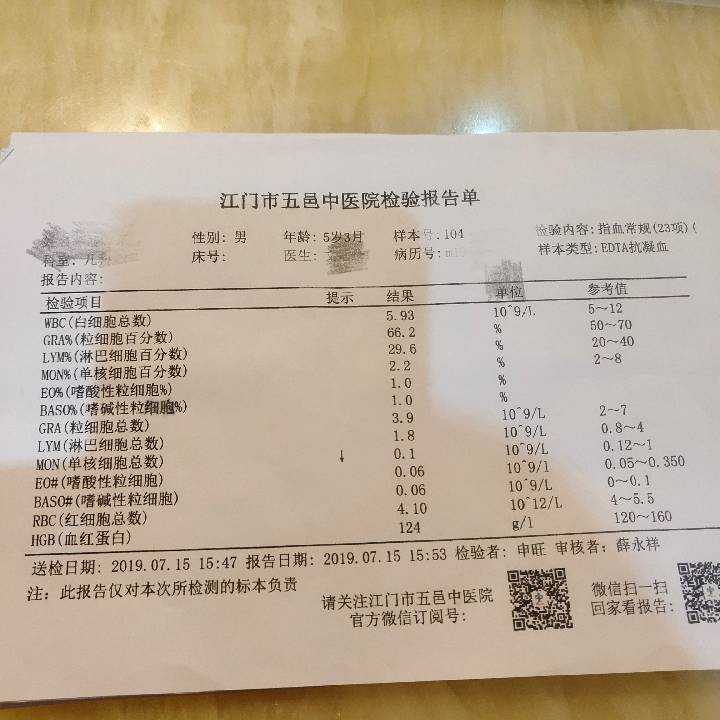 江门市五邑中医院检验报告单
性别: 男 年龄: 5岁3月 样本号: 104 检验内容: 指血常规(23项)(
科室: 儿 床号: 医生: 病历号: 样本类型: EDTA抗凝血
报告内容:
检验项目 提示 结果 单位 参考值
WBC(白细胞总数) 5.93 10^9/L 5～12
GRA%(粒细胞百分数) 66.2 % 50～70
LYM%(淋巴细胞百分数) 29.6 % 20～40
MON%(单核细胞百分数) 2.2 % 2～8
EO%(嗜酸性粒细胞%) 1.0 %
BASO%(嗜碱性粒细胞%) 1.0 %
GRA(粒细胞总数) 3.9 10^9/L 2～7
LYM(淋巴细胞总数) 1.8 10^9/L 0.8～4
MON(单核细胞总数) ↓ 0.1 10^9/L 0.12～1
EO#(嗜酸性粒细胞) 0.06 10^9/l 0.05～0.350
BASO#(嗜碱性粒细胞) 0.06 10^9/L 0～0.1
RBC(红细胞总数) 4.10 10^12/L 4～5.5
HGB(血红蛋白) 124 g/l 120～160
送检日期: 2019.07.15 15:47 报告日期: 2019.07.15 15:53 检验者: 申旺 审核者: 薛永祥
注: 此报告仅对本次所检测的标本负责
请关注江门市五邑中医院
官方微信订阅号:
微信扫一扫
回家看报告: